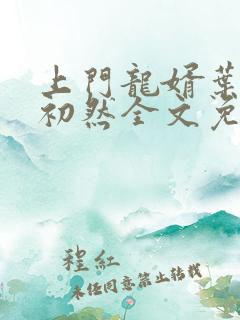 上門龍婿葉
初然全文免
程紅
未经同意禁止转载